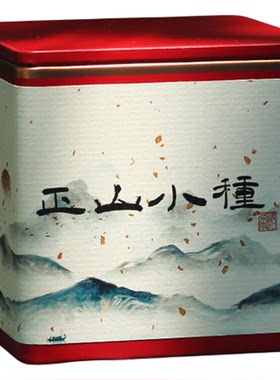 正山小種